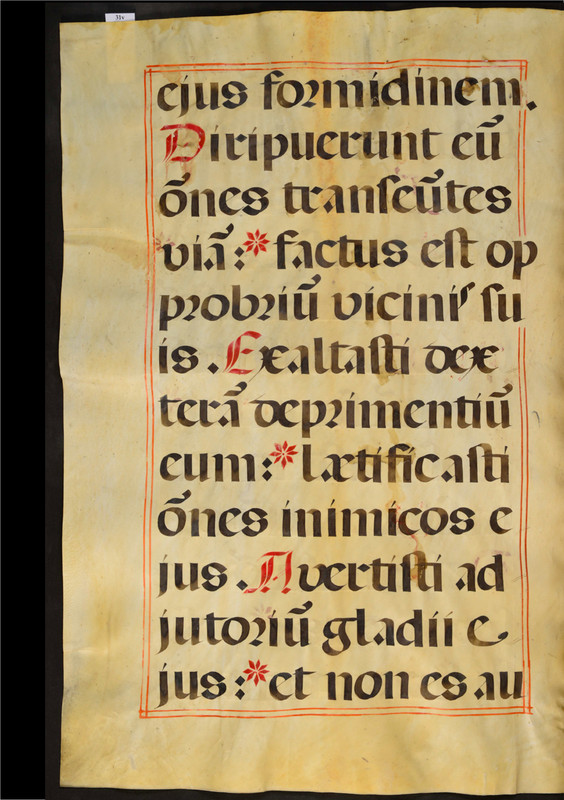 31v
ejus formidinem.
Diripuerunt eū
ōnes tranſeūtes
viā :* factus eſt op
probriū viciniſ ſu
is . Exaltaſti dex
terā deprimentiū
eum :* lætificaſti
ōnes inimicos e
jus . Avertiſti ad
jutoriū gladii e
jus :* et non es au